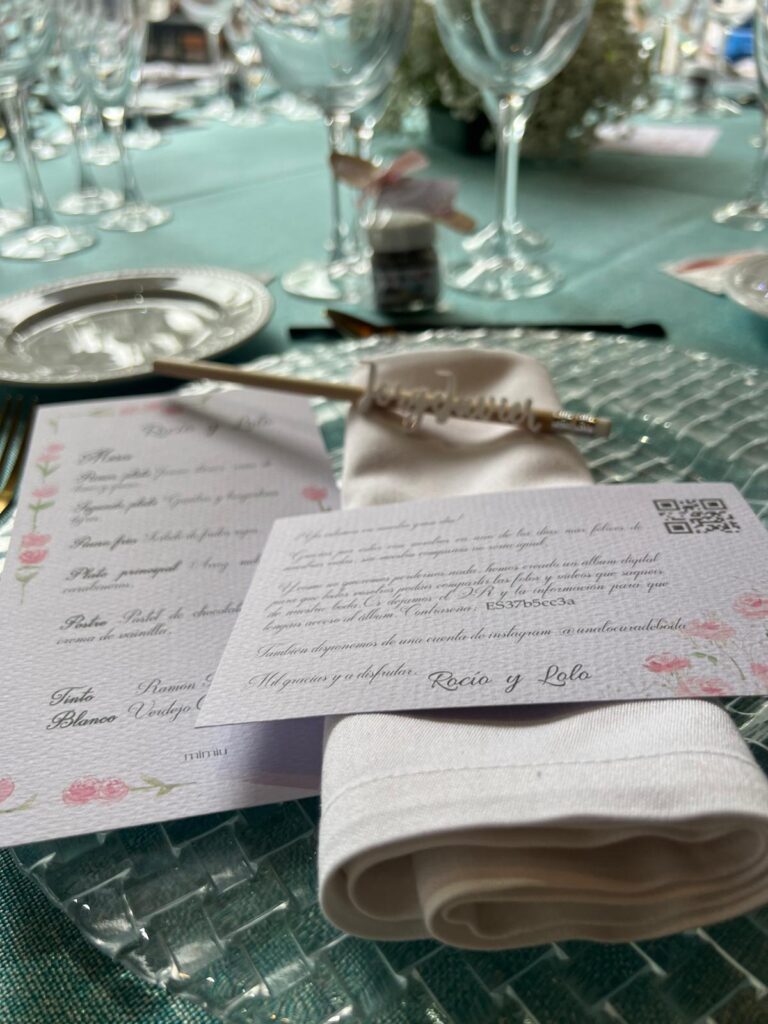 Jorge Javier
Rocío y Lolo
Menu
Segundo plato
Plato principal
Postre Pastel de chocolate
crema de vainilla.
Tinto Ramón
Blanco Verdejo
mimiu
¡Ya estamos en nuestro gran día!
Gracias por estar con nosotros en uno de los días más felices de
nuestras vidas, sin vuestra compañía no sería igual.
Y como no queremos perdernos nada, hemos creado un álbum digital
para que todos vosotros podáis compartir las fotos y vídeos que saquéis
de nuestra boda. Os dejamos el QR y la información para que
tengáis acceso al álbum. Contraseña: ES37b5cc3a
También disponemos de una cuenta de instagram @unalocuradeboda
Mil gracias y a disfrutar.
Rocío y Lolo